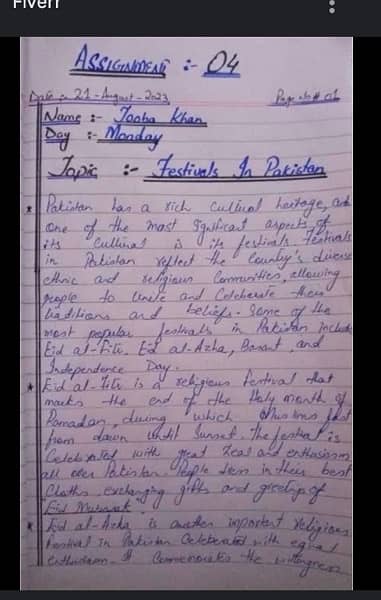 Fiverr
Assignment :- 04
Date :- 21-August-2023 Page No# 01
Name :- Tooba Khan
Day :- Monday
Topic :- Festivals In Pakistan
* Pakistan has a rich cultural heritage, and
one of the most significant aspects of
its cultural is its festivals. Festivals
in Pakistan reflect the country's diverse
ethnic and religious communities, allowing
people to unite and celebrate their
traditions and beliefs. Some of the
most popular festivals in Pakistan include
Eid al-Fitr, Eid al-Azha, Basant, and
Independence Day.
* Eid al-Fitr is a religious festival that
marks the end of the Holy month of
Ramadan, during which Muslims fast
from dawn until sunset. The festival is
Celebrated with great zeal and enthusiasm
all over Pakistan. People dress in their best
Cloths, exchanging gifts and greetings of
"Eid Mubarak"
* Eid al-Azha is another important religious
festival in Pakistan Celebrated with equal
enthusiasm. It Commemorates the willingness